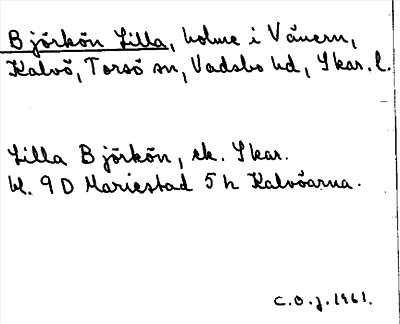 Björkön Lilla, holme i Vänern,
Kalvö, Torsö sn, Vadsbo hd, Skar. l.
Lilla Björkön, ek. Skar.
bl. 9D Mariestad 5h Kalvöarna.
C.O.J. 1961.